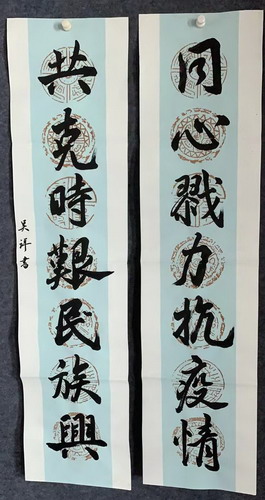 同心戮力抗疫情
共克時艱民族興
吴祥書